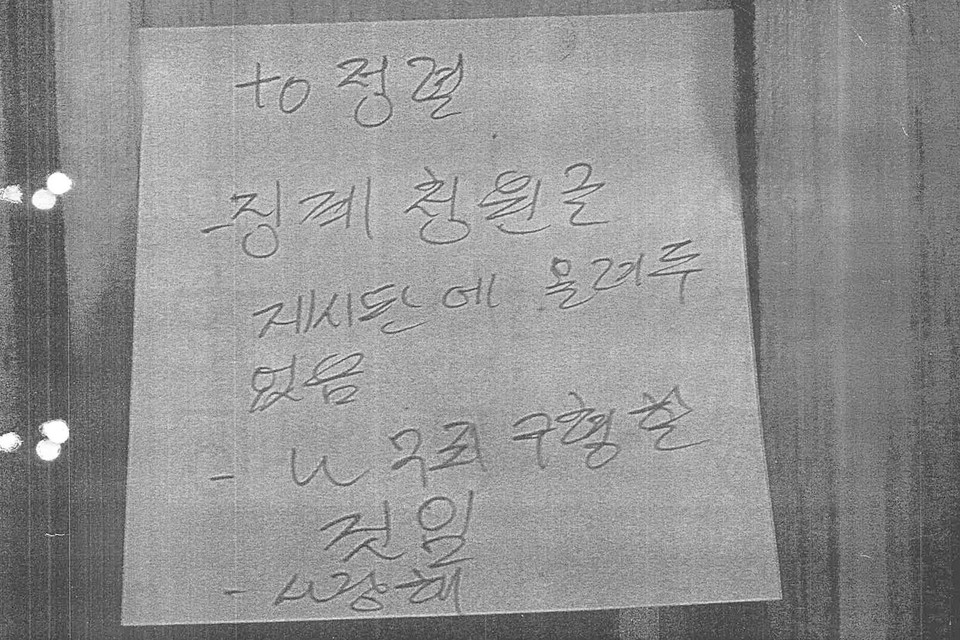 to 정렬
-징계 청원글
게시판에 올려두
었음
- 난 무죄 구형할
것임
- 사랑해